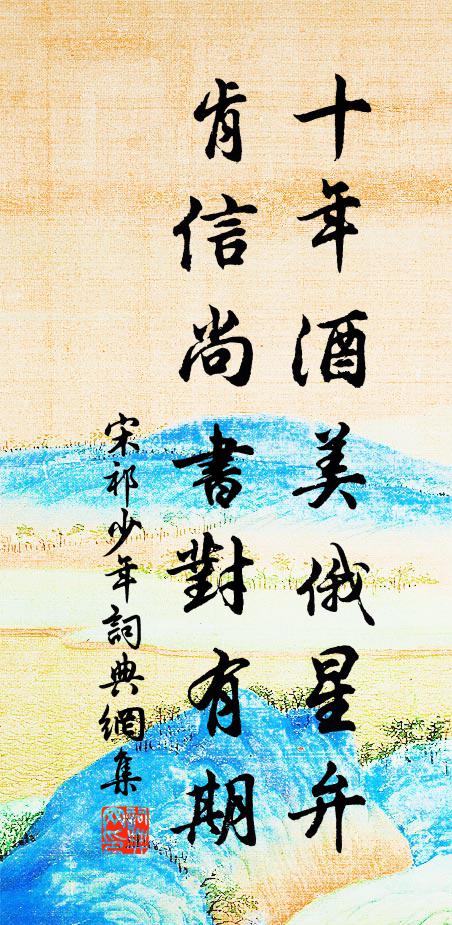 十年酒美俄星弁
肯信尚書對有期
宋祁少年詞典網集